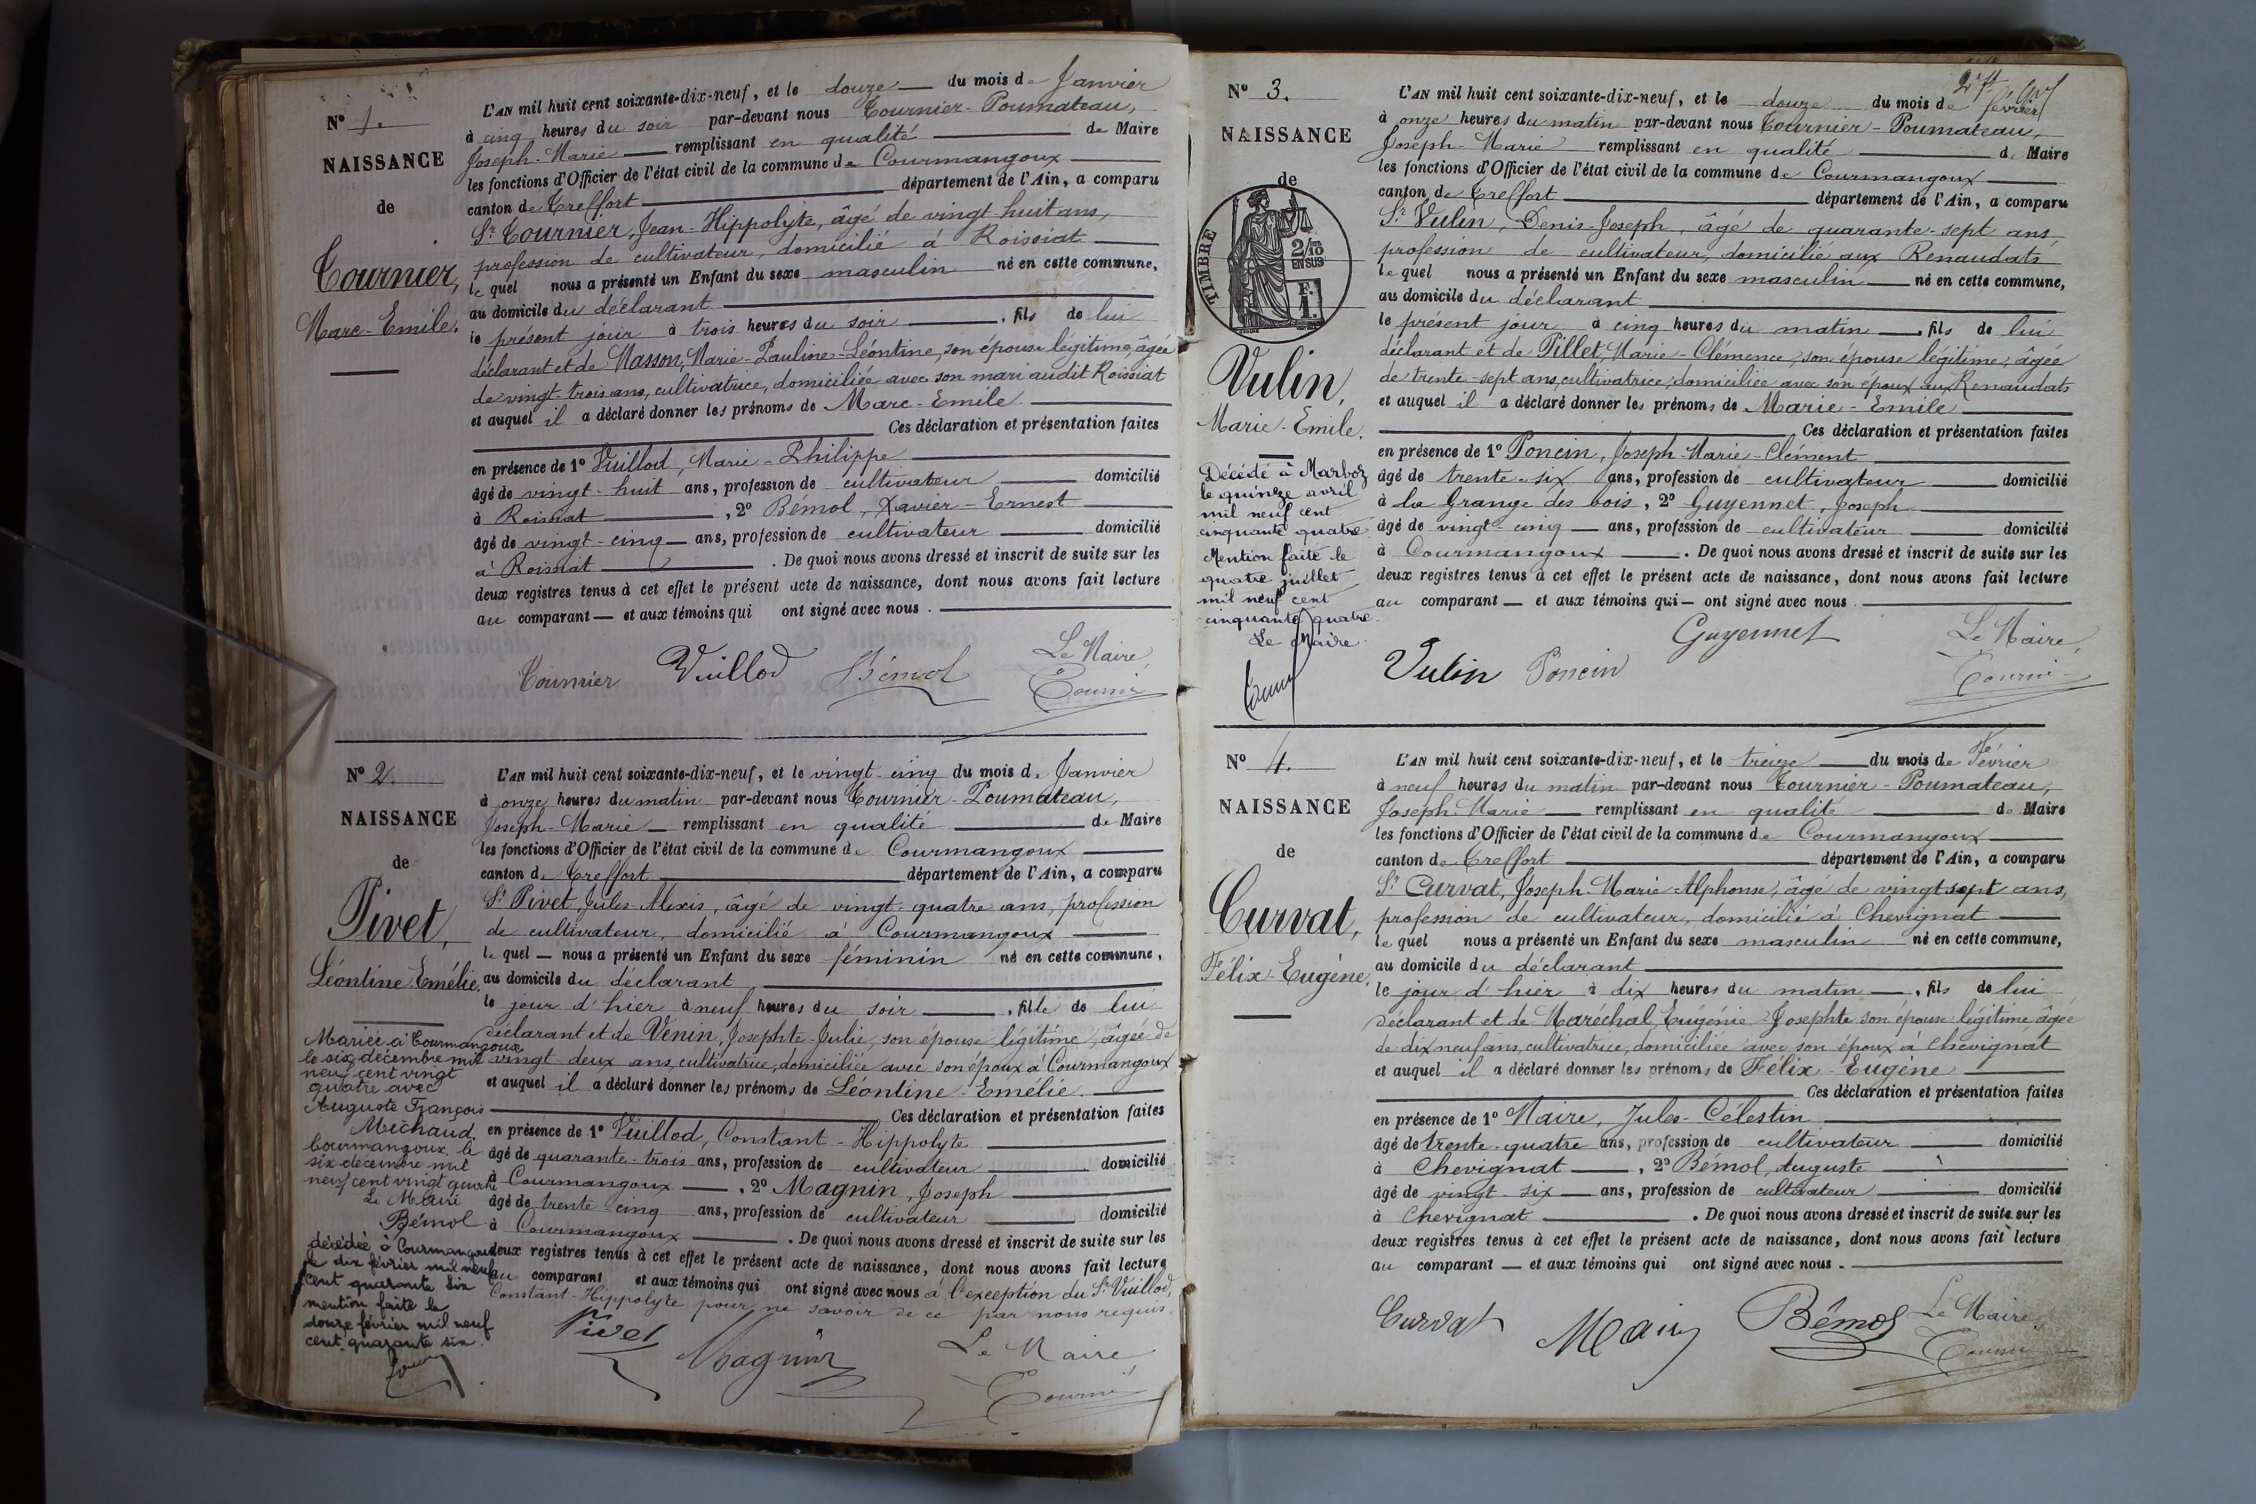 Nº 1.
NAISSANCE
de
Tournier,
Marc-Emile.
L'AN mil huit cent soixante-dix-neuf, et le douze du mois de Janvier
à cinq heures du soir par-devant nous Tournier-Poumateau,
Joseph-Marie remplissant en qualité de Maire
les fonctions d'Officier de l'état civil de la commune de Courmangoux
canton de Treffort département de l'Ain, a comparu
Sr Tournier, Jean-Hippolyte, âgé de vingt huit ans,
profession de cultivateur, domicilié à Roissiat
le quel nous a présenté un Enfant du sexe masculin né en cette commune,
au domicile du déclarant
le présent jour à trois heures du soir, fils de lui
déclarant et de Masson, Marie-Pauline-Léontine, son épouse légitime, âgée
de vingt-trois ans, cultivatrice, domiciliée avec son mari audit Roissiat
et auquel il a déclaré donner les prénoms de Marc-Emile
Ces déclaration et présentation faites
en présence de 1º Vuillod, Marie-Philippe
âgé de vingt-huit ans, profession de cultivateur domicilié
à Roissiat, 2º Bémol, Xavier-Ernest
âgé de vingt-cinq ans, profession de cultivateur domicilié
à Roissiat. De quoi nous avons dressé et inscrit de suite sur les
deux registres tenus à cet effet le présent acte de naissance, dont nous avons fait lecture
au comparant et aux témoins qui ont signé avec nous.
Tournier Vuillod Bémol Le Maire,
Tournier
Nº 2.
NAISSANCE
de
Pivet,
Léontine-Emélie.
Mariée à Courmangoux
le six décembre mil
neuf cent vingt
quatre avec
Auguste François
Michaud.
Courmangoux, le
six décembre mil
neuf cent vingt quatre
Le Maire
Bémol
décédée à Courmangoux
le dix février mil neuf
cent quarante six
mention faite le
douze février mil neuf
cent quarante six.
L'AN mil huit cent soixante-dix-neuf, et le vingt-cinq du mois de Janvier
à onze heures du matin par-devant nous Tournier-Poumateau,
Joseph-Marie remplissant en qualité de Maire
les fonctions d'Officier de l'état civil de la commune de Courmangoux
canton de Treffort département de l'Ain, a comparu
Sr Pivet, Jules-Alexis, âgé de vingt-quatre ans, profession
de cultivateur, domicilié à Courmangoux
le quel nous a présenté un Enfant du sexe féminin né en cette commune,
au domicile du déclarant
le jour d'hier à neuf heures du soir, fille de lui
déclarant et de Vénin, Josephte-Julie, son épouse légitime, âgée de
vingt-deux ans, cultivatrice, domiciliée avec son époux à Courmangoux
et auquel il a déclaré donner les prénoms de Léontine-Emélie.
Ces déclaration et présentation faites
en présence de 1º Vuillod, Constant-Hippolyte
âgé de quarante-trois ans, profession de cultivateur domicilié
à Courmangoux, 2º Magnin, Joseph
âgé de trente-cinq ans, profession de cultivateur domicilié
à Courmangoux. De quoi nous avons dressé et inscrit de suite sur les
deux registres tenus à cet effet le présent acte de naissance, dont nous avons fait lecture
au comparant et aux témoins qui ont signé avec nous à l'exception du Sr Vuillod,
Constant-Hippolyte pour ne savoir de ce par nous requis.
Pivet Magnin Le Maire,
Tournier
Nº 3.
NAISSANCE
de
TIMBRE
2/10
EN SUS
F.
1.
Vulin,
Marie-Emile.
Décédé à Marboz
le quinze avril
mil neuf cent
cinquante quatre
Mention faite le
quatre juillet
mil neuf cent
cinquante quatre.
Le Maire
L'AN mil huit cent soixante-dix-neuf, et le douze du mois de février
à onze heures du matin par-devant nous Tournier-Poumateau,
Joseph-Marie remplissant en qualité de Maire
les fonctions d'Officier de l'état civil de la commune de Courmangoux
canton de Treffort département de l'Ain, a comparu
Sr Vulin, Denis-Joseph, âgé de quarante-sept ans,
profession de cultivateur, domicilié aux Renaudats
le quel nous a présenté un Enfant du sexe masculin né en cette commune,
au domicile du déclarant
le présent jour à cinq heures du matin, fils de lui
déclarant et de Pillet, Marie-Clémence, son épouse légitime, âgée
de trente-sept ans, cultivatrice, domiciliée avec son époux aux Renaudats
et auquel il a déclaré donner les prénoms de Marie-Emile
Ces déclaration et présentation faites
en présence de 1º Poncin, Joseph-Marie-Clément
âgé de trente-six ans, profession de cultivateur domicilié
à la Grange des bois, 2º Guyennet, Joseph
âgé de vingt-cinq ans, profession de cultivateur domicilié
à Courmangoux. De quoi nous avons dressé et inscrit de suite sur les
deux registres tenus à cet effet le présent acte de naissance, dont nous avons fait lecture
au comparant et aux témoins qui ont signé avec nous.
Guyennet Le Maire,
Vulin Poncin Tournier
Nº 4.
NAISSANCE
de
Curvat,
Félix-Eugène.
L'AN mil huit cent soixante-dix-neuf, et le treize du mois de Février
à neuf heures du matin par-devant nous Tournier-Poumateau,
Joseph-Marie remplissant en qualité de Maire
les fonctions d'Officier de l'état civil de la commune de Courmangoux
canton de Treffort département de l'Ain, a comparu
Sr Curvat, Joseph-Marie-Alphonse, âgé de vingt sept ans,
profession de cultivateur, domicilié à Chevignat
le quel nous a présenté un Enfant du sexe masculin né en cette commune,
au domicile du déclarant
le jour d'hier à dix heures du matin, fils de lui
déclarant et de Maréchal, Eugénie-Josephte son épouse légitime, âgée
de dix neuf ans, cultivatrice, domiciliée avec son époux à Chevignat
et auquel il a déclaré donner les prénoms de Félix-Eugène
Ces déclaration et présentation faites
en présence de 1º Maire, Jules-Célestin
âgé de trente-quatre ans, profession de cultivateur domicilié
à Chevignat, 2º Bémol, Auguste
âgé de vingt-six ans, profession de cultivateur domicilié
à Chevignat. De quoi nous avons dressé et inscrit de suite sur les
deux registres tenus à cet effet le présent acte de naissance, dont nous avons fait lecture
au comparant et aux témoins qui ont signé avec nous.
Curvat Maire Bémol Le Maire,
Tournier